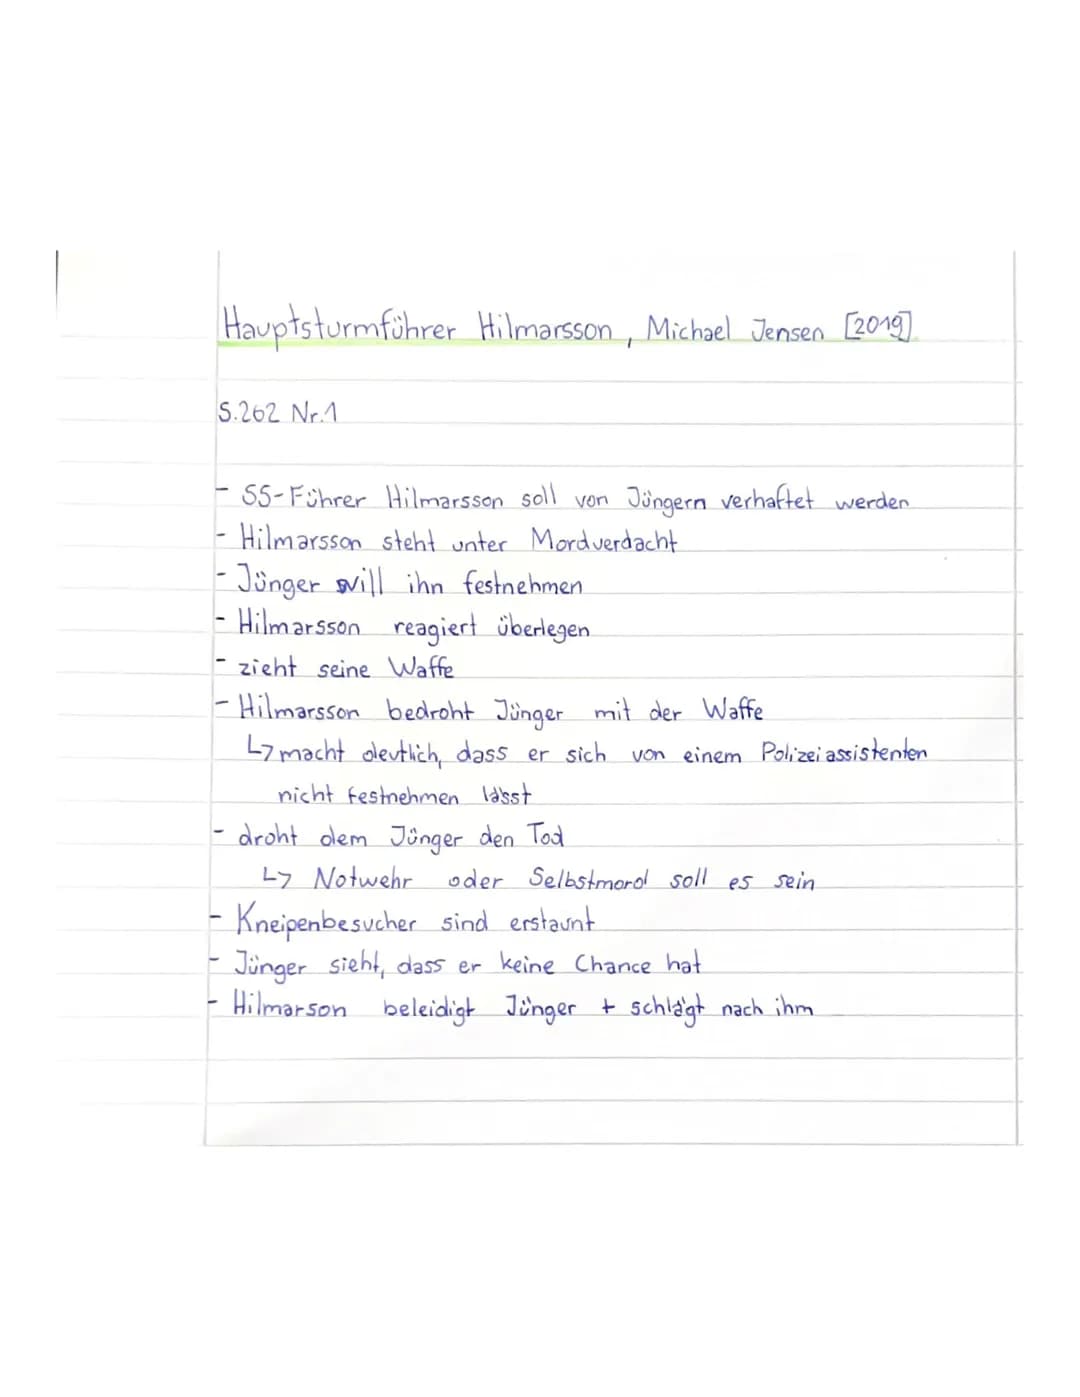 Hauptsturmführer Hilmarsson, Michael Jensen [2019]
S.262 Nr.1
- SS-Führer Hilmarsson soll von Jüngern verhaftet werden
- Hilmarsson steht unter Mordverdacht
- Jünger will ihn festnehmen
- Hilmarsson reagiert überlegen
- zieht seine Waffe
- Hilmarsson bedroht Jünger mit der Waffe
↳ macht deutlich, dass er sich von einem Polizeiassistenten
nicht festnehmen lässt
- droht dem Jünger den Tod
↳ Notwehr oder Selbstmord soll es sein
- Kneipenbesucher sind erstaunt
- Jünger sieht, dass er keine Chance hat
- Hilmarson beleidigt Jünger + schlägt nach ihm